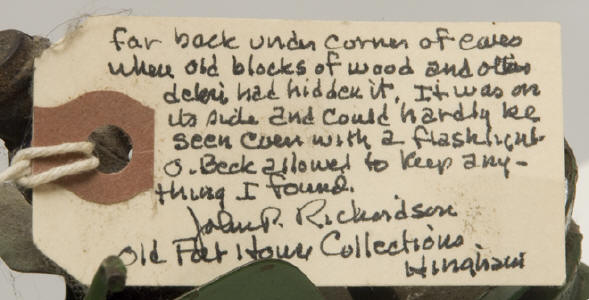 far back under corner of eaves
when old blocks of wood and other
debris had hidden it. It was on
its side and could hardly be
seen even with a flashlight.
O. Beck allowed to keep any-
thing I found.
John P. Richardson
Old Fort House Collections
Hingham